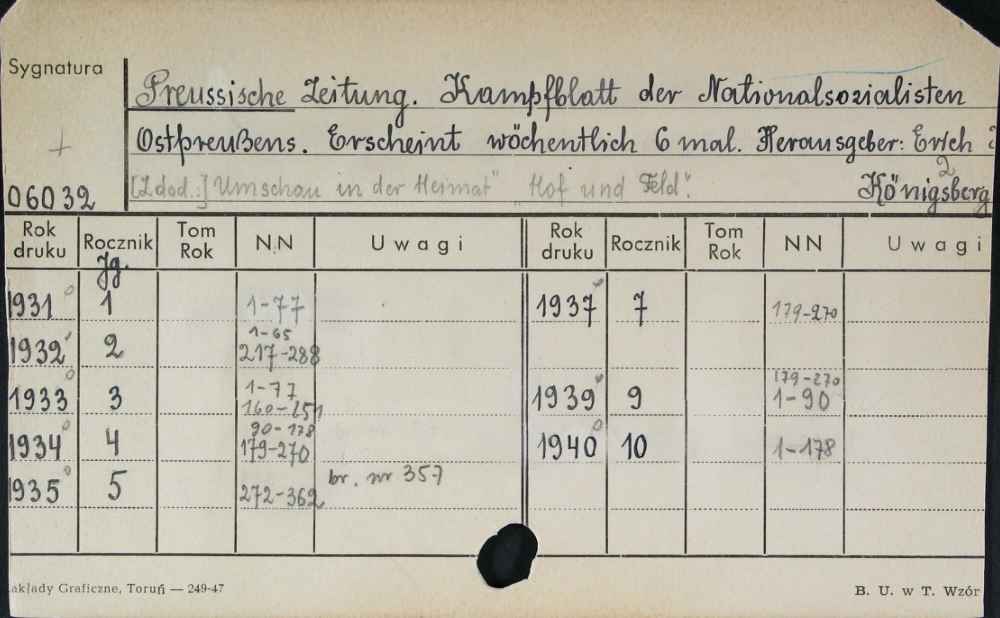 Sygnatura
Preussische Zeitung. Kampfblatt der Nationalsozialisten
+
Ostpreußens. Erscheint wöchentlich 6 mal. Herausgeber: Erich
2
06032
[Z dod.:] "Umschau in der Heimat" "Hof und Feld".
Königsberg
Rok druku Rocznik Tom Rok N.N Uwagi Rok druku Rocznik Tom Rok NN Uwagi
Jg.
1931 1 1-77 1937 7 179-270
1932 2 1-65 217-288
1933 3 1-77 160-251 1939 9 179-270 1-90
1934 4 90-178 179-270 1940 10 1-178
1935 5 272-362 br. nr 357
akłady Graficzne, Toruń — 249-47
B. U. w T. Wzór